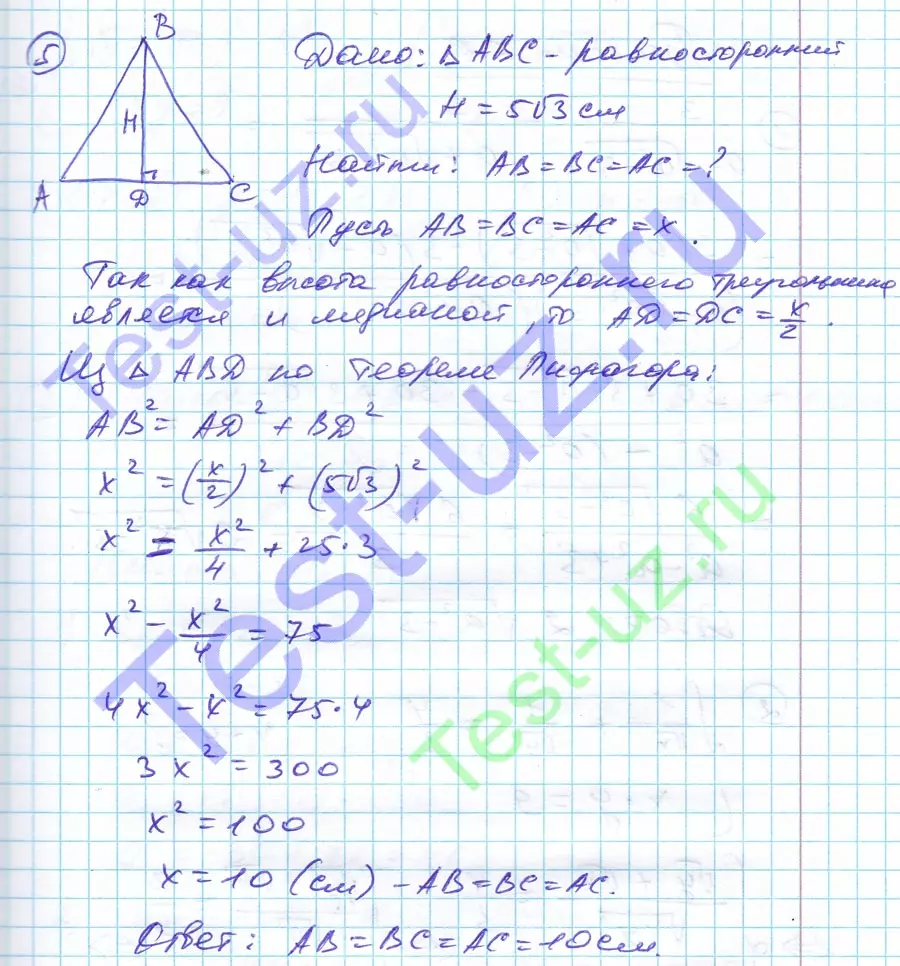 5
B
Дано: Δ ABC - равносторонний
H = 5√3 см
H
Найти: AB = BC = AC = ?
A D C
Пусть AB = BC = AC = x.
Так как высота равностороннего треугольника
является и медианой, то AD = DC = x/2.
Из Δ ABD по теореме Пифагора:
AB² = AD² + BD²
x² = (x/2)² + (5√3)²
x² = x²/4 + 25·3
x² - x²/4 = 75
4x² - x² = 75·4
3x² = 300
x² = 100
x = 10 (см) - AB = BC = AC.
Ответ: AB = BC = AC = 10 см.
Test-uz.ru
Test-uz.ru
Test-uz.ru